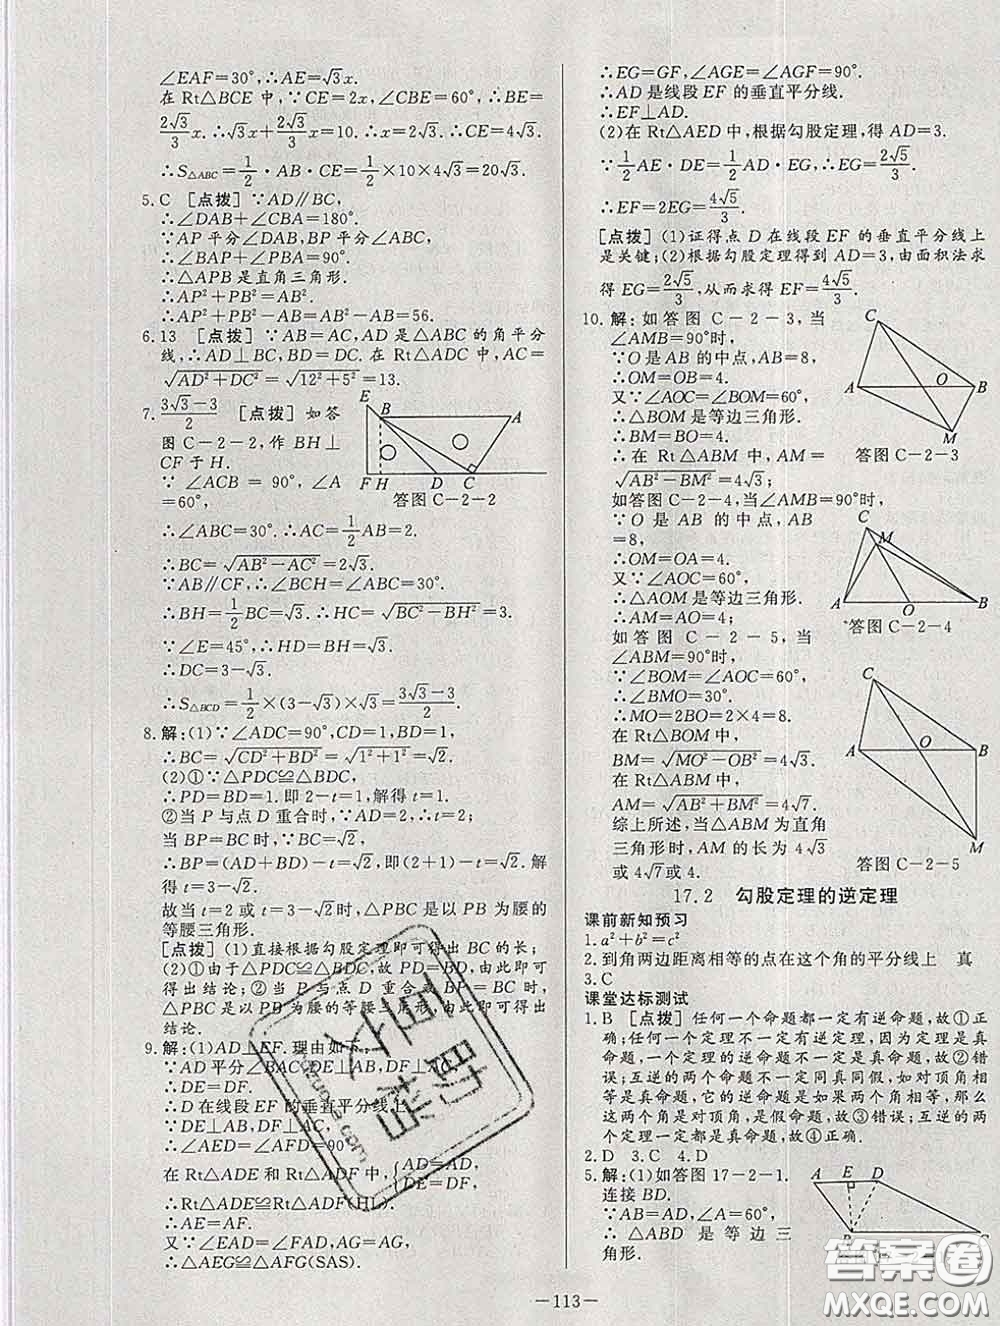 ∠EAF=30°,∴AE=√3x.
在 Rt△BCE 中,∵CE=2x,∠CBE=60°,∴BE=
2√3/3 x.∴√3x+2√3/3 x=10.∴x=2√3.∴CE=4√3.
∴S△ABC=1/2·AB·CE=1/2×10×4√3=20√3.
5.C [点拨]∵AD∥BC,
∴∠DAB+∠CBA=180°.
∵AP 平分∠DAB,BP 平分∠ABC,
∴∠BAP+∠PBA=90°.
∴△APB 是直角三角形.
∴AP²+PB²=AB².
∴AP²+PB²-AB=AB²-AB=56.
6.13 [点拨]∵AB=AC,AD 是△ABC 的角平分
线,∴AD⊥BC,BD=DC.在 Rt△ADC 中,AC=
√(AD²+DC²)=√(12²+5²)=13.
7.(3√3-3)/2 [点拨]如答
图 C-2-2,作 BH⊥
CF 于 H.
∵∠ACB=90°,∠A
=60°,
E B A
F H D C
答图 C-2-2
∴∠ABC=30°.∴AC=1/2AB=2.
∴BC=√(AB²-AC²)=2√3.
∵AB∥CF,∴∠BCH=∠ABC=30°.
∴BH=1/2BC=√3.∴HC=√(BC²-BH²)=3.
∵∠E=45°,∴HD=BH=√3.
∴DC=3-√3.
∴S△BCD=1/2×(3-√3)×√3=(3√3-3)/2.
8.解:(1)∵∠ADC=90°,CD=1,BD=1,
∴BC=√(CD²+BD²)=√(1²+1²)=√2.
(2)①∵△PDC≌△BDC,
∴PD=BD=1.即 2-t=1,解得 t=1.
②当 P 与点 D 重合时,∵AD=2,∴t=2;
当 BP=BC时,∵BC=√2,
∴BP=(AD+BD)-t=√2,即(2+1)-t=√2.解
得 t=3-√2.
故当 t=2 或 t=3-√2时,△PBC 是以 PB 为腰的
等腰三角形.
[点拨](1)直接根据勾股定理即可得出 BC 的长;
(2)①由于△PDC≌△BDC,故 PD=BD,由此即
可得出结论;②当 P 与点 D 重合或 BP=BC 时,
△PBC 是以 PB 为腰的等腰三角形,由此可得出
结论.
9.解:(1)AD⊥EF.理由如下:
∵AD 平分∠BAC,DE⊥AB,DF⊥AC,
∴DE=DF.
∴D 在线段 EF 的垂直平分线上.
∵DE⊥AB,DF⊥AC,
∴∠AED=∠AFD=90°.
在 Rt△ADE 和 Rt△ADF 中,{AD=AD, DE=DF,
∴Rt△ADE≌Rt△ADF(HL).
∴AE=AF.
又∵∠EAD=∠FAD,AG=AG,
∴△AEG≌△AFG(SAS).
∴EG=GF,∠AGE=∠AGF=90°.
∴AD 是线段 EF 的垂直平分线.
∴EF⊥AD.
(2)在 Rt△AED 中,根据勾股定理,得 AD=3.
∵1/2AE·DE=1/2AD·EG,∴EG=2√5/3.
∴EF=2EG=4√5/3.
[点拨](1)证得点 D 在线段 EF 的垂直平分线上
是关键;(2)根据勾股定理得到 AD=3,由面积法求
得 EG=2√5/3,从而求得 EF=4√5/3.
10.解:如答图 C-2-3,当
∠AMB=90°时,
∵O 是 AB 的中点,AB=8,
∴OM=OB=4.
又∵∠AOC=∠BOM=60°,
∴△BOM 是等边三角形.
∴BM=BO=4.
∴在 Rt△ABM 中,AM=
√(AB²-BM²)=4√3;
C A O B M
答图 C-2-3
如答图 C-2-4,当∠AMB=90°时,
∵O 是 AB 的中点,AB
=8,
∴OM=OA=4.
又∵∠AOC=60°,
∴△AOM 是等边三角形.
∴AM=AO=4;
C M A O B
答图 C-2-4
如答图 C-2-5,当
∠ABM=90°时,
∵∠BOM=∠AOC=60°,
∴∠BMO=30°.
∴MO=2BO=2×4=8.
∴在 Rt△BOM 中,
BM=√(MO²-OB²)=4√3.
在 Rt△ABM 中,
AM=√(AB²+BM²)=4√7.
综上所述,当△ABM 为直角
三角形时,AM 的长为 4√3
或4√7或4.
C A O B M
答图 C-2-5
17.2 勾股定理的逆定理
课前新知预习
1.a²+b²=c²
2.到角两边距离相等的点在这个角的平分线上 真
3.C
课堂达标测试
1.B [点拨]任何一个命题都一定有逆命题,故①正
确;任何一个定理不一定有逆定理,因为定理是真
命题,一个定理的逆命题不一定是真命题,故②错
误;互逆的两个命题不一定同真同假,如对顶角相
等是真命题,它的逆命题是如果两个角相等,那么
这两个角是对顶角,是假命题,故③错误;互逆的两
个定理一定都是真命题,故④正确.
2.D 3.C 4.D
5.解:(1)如答图 17-2-1,
连接 BD.
∵AB=AD,∠A=60°,
∴△ABD 是等边三
角形.
A E D
B C
—113—
答案圈
MXQE.COM